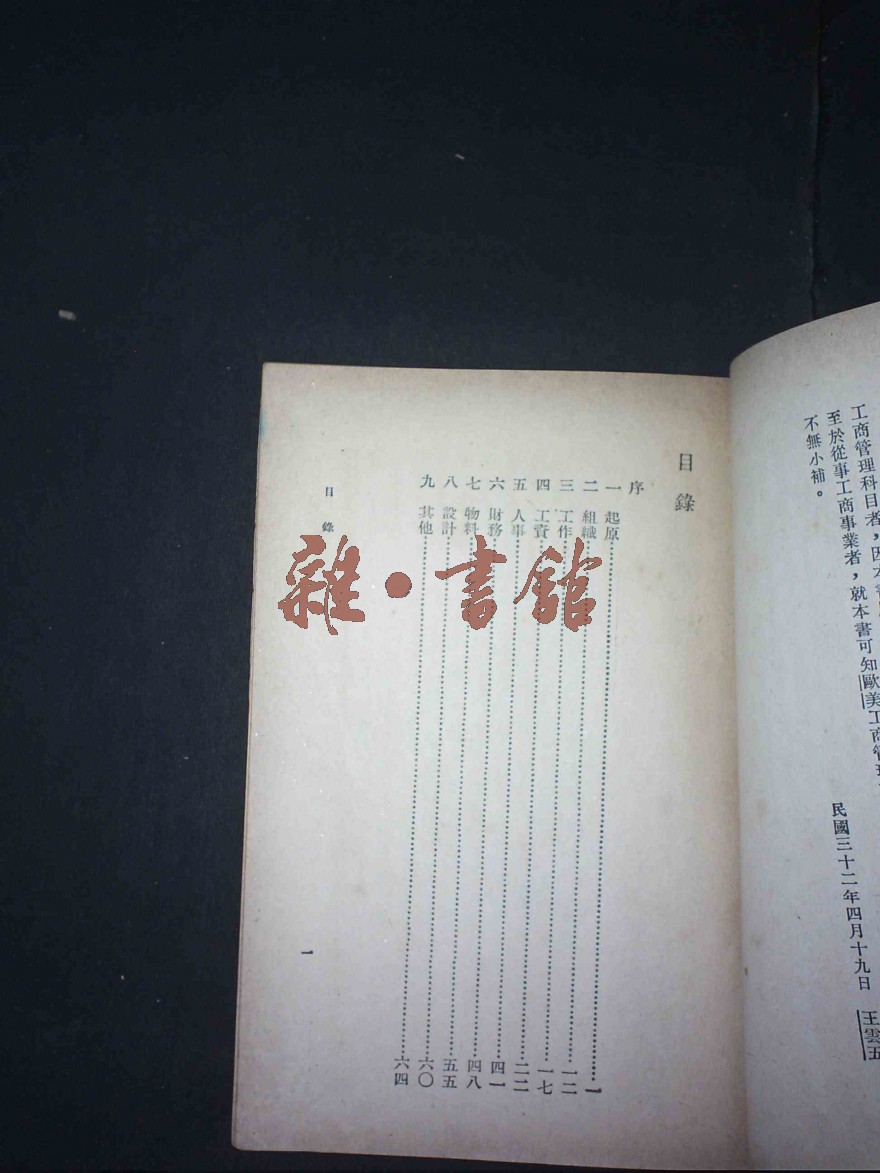 工商管理科目者，因本書
至於從事工商事業者，就本書可知歐美工商管理
不無小補。
民國三十二年四月十九日
王雲五
目錄
序
一 起原……一
二 組織……一二
三 工作……一七
四 工資……二二
五 人事……四一
六 財務……四八
七 物料……五五
八 設計……六〇
九 其他……六四
目錄
一
雜·書館